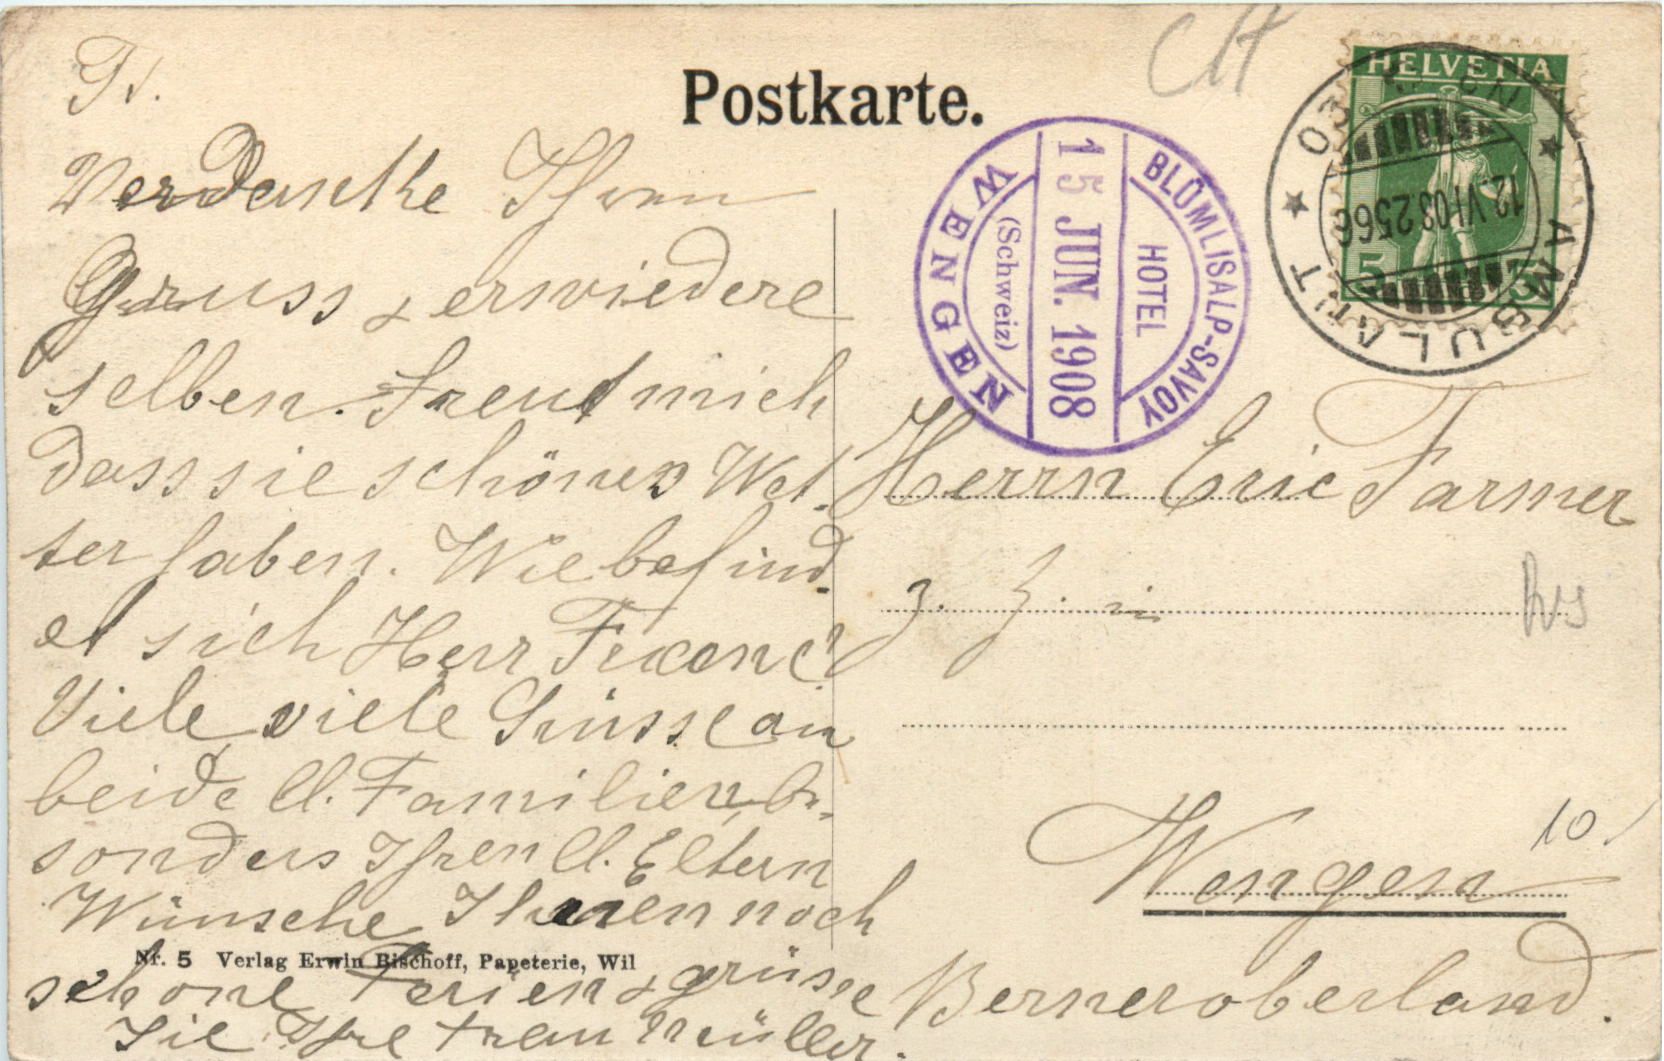 Postkarte.
HELVETIA
5
AMBULANT
12.VI 08
BLÜMLISALP-SAVOY
HOTEL
15 JUN. 1908
(Schweiz)
WENGEN
Verdanke Ihren
Gruss & erwiedere
selben. Freut mich
dass sie schönes Wet-
ter haben. Wie befind-
et sich Herr
Viele viele Grüsse an
beide ll. Familien, be-
sonders Ihren ll. Eltern
Wünsche Ihnen noch
schöne Ferien & grüsse
Sie Ihre Frau Müller.
Nr. 5 Verlag Erwin Bischoff, Papeterie, Wil
Herrn Eric Farmer
z. Z. in
Wengen
Berneroberland.
10